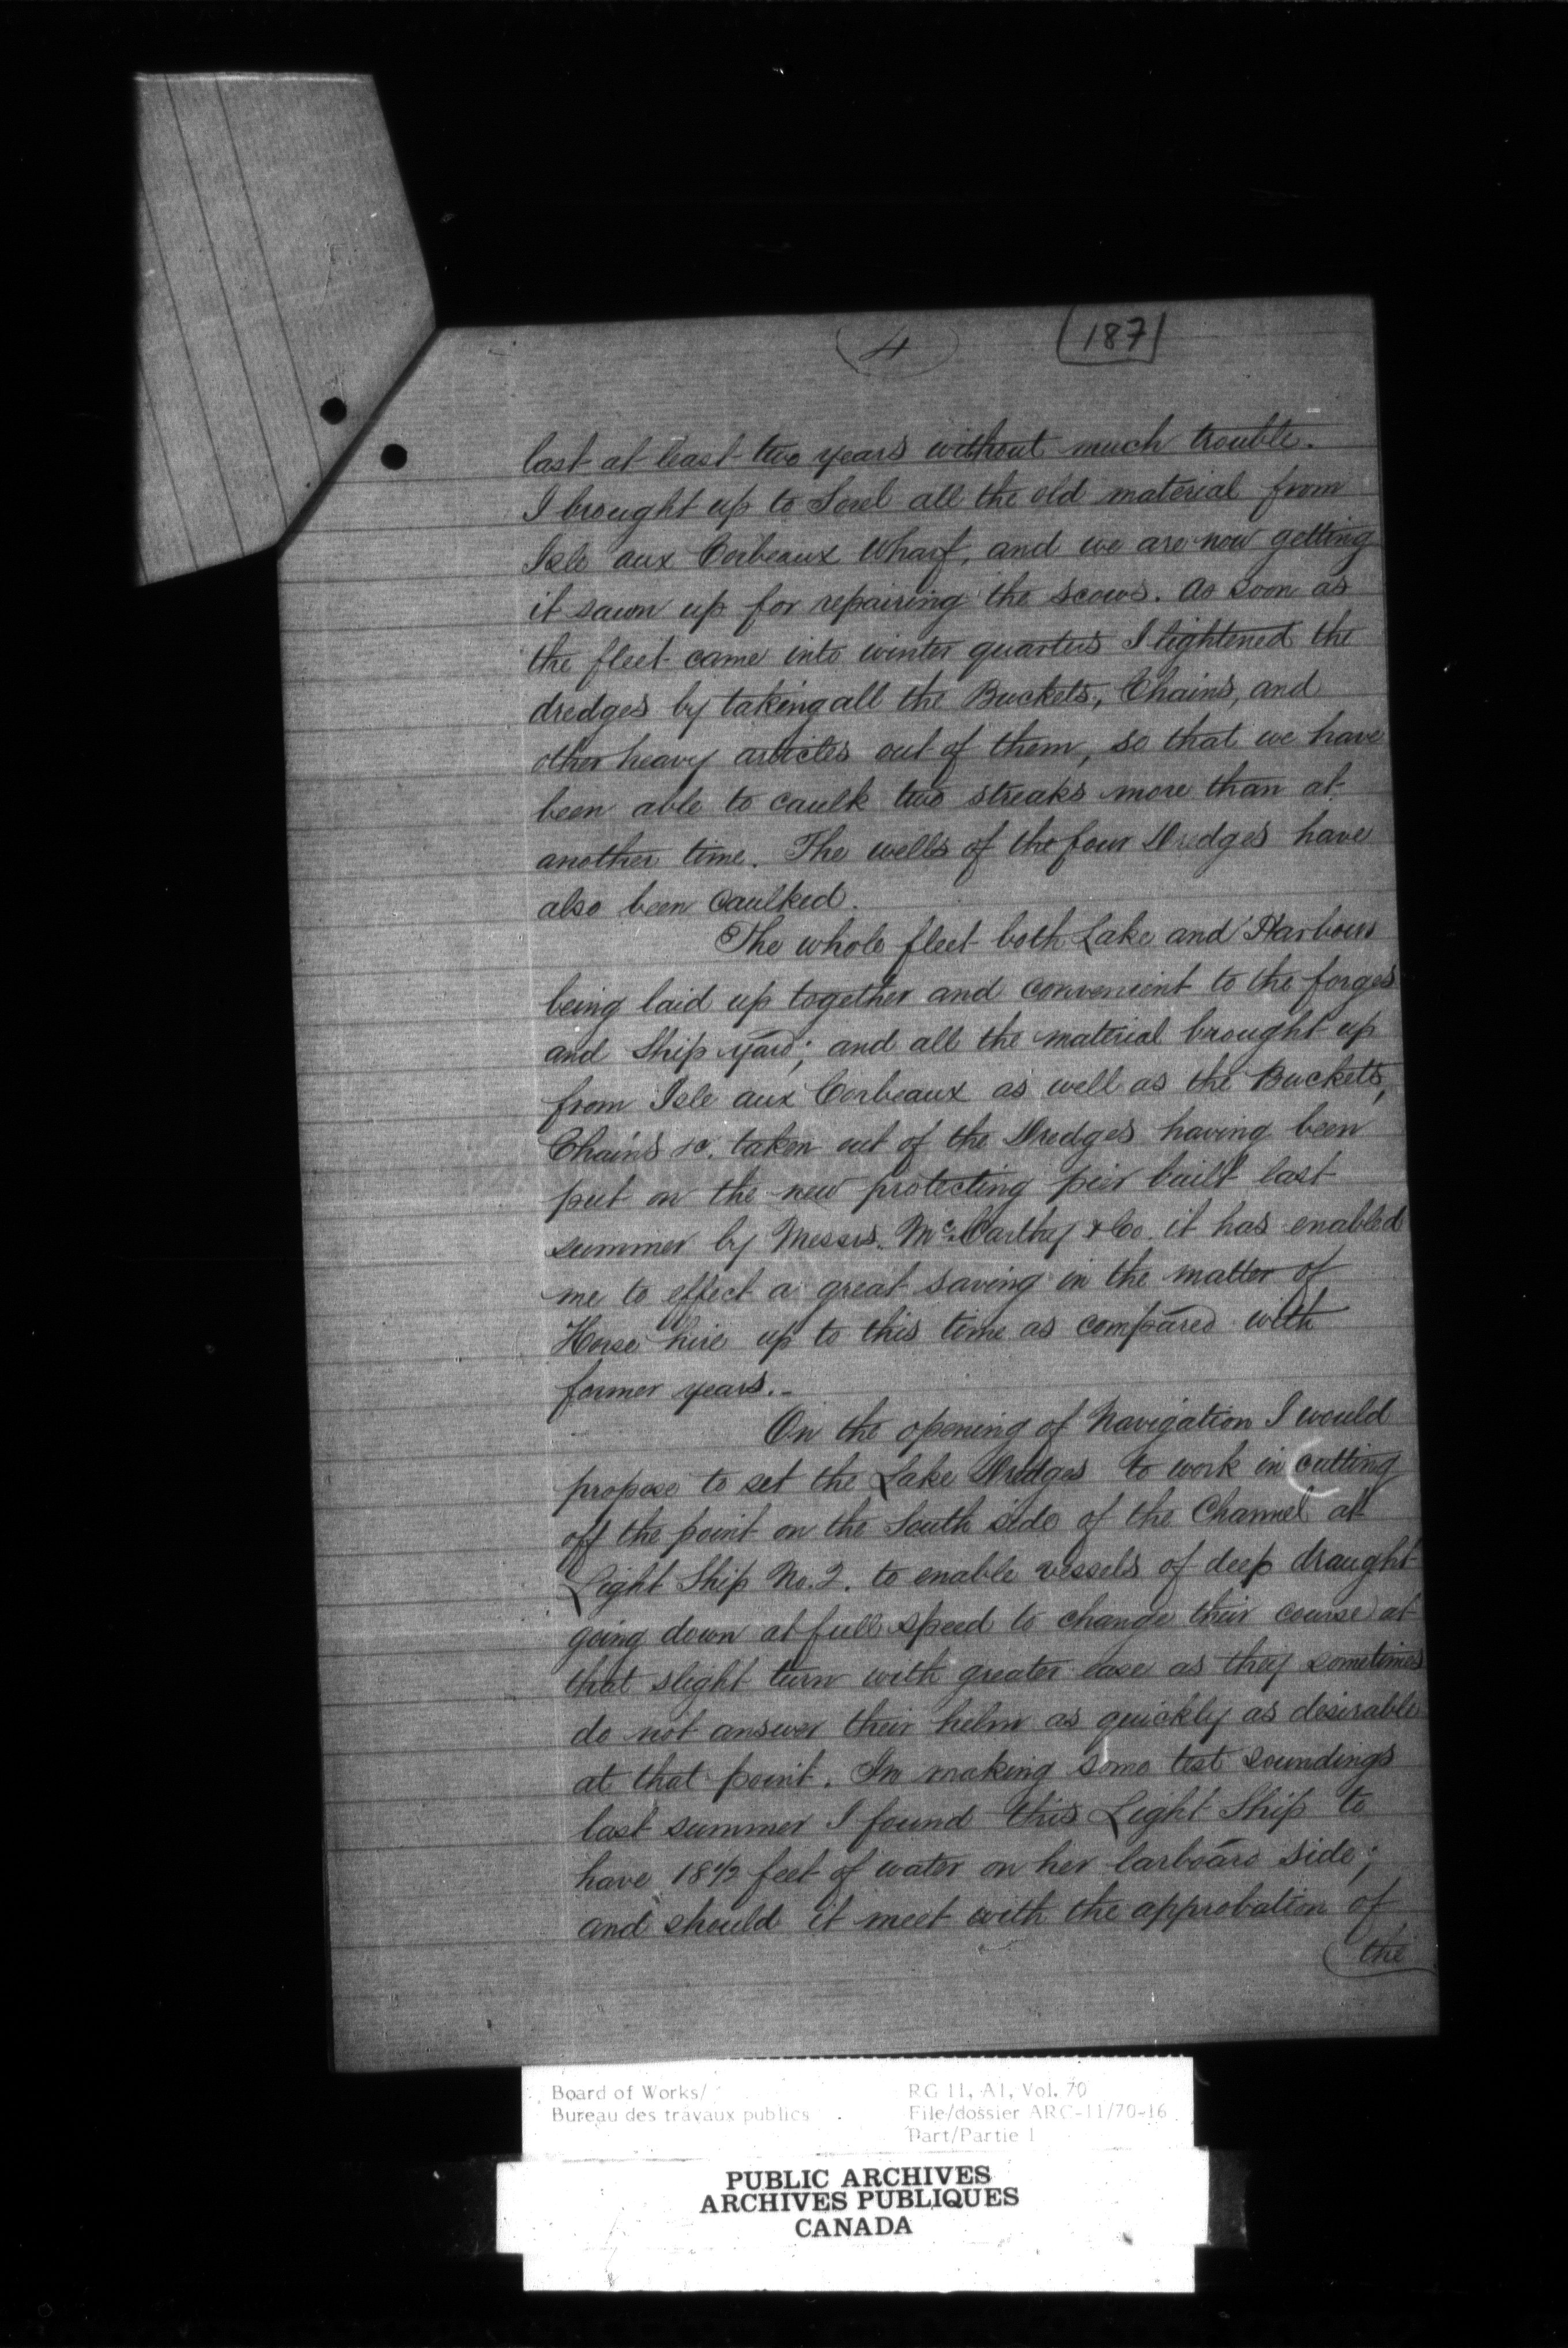 4
187
last at least two years without much trouble.
I brought up to Sorel all the old material from
Isle aux Corbeaux Wharf, and we are now getting
it sawn up for repairing the scows. As soon as
the fleet came into winter quarters I lightened the
dredges by taking all the Buckets, Chains, and
other heavy articles out of them, so that we have
been able to caulk two streaks more than at
another time. The wells of the four Dredges have
also been caulked.
The whole fleet both Lake and Harbour
being laid up together and convenient to the forges
and Ship yard; and all the material brought up
from Isle aux Corbeaux as well as the Buckets,
Chains &c. taken out of the Dredges having been
put on the new protecting pier built last
summer by Messrs. McCarthy & Co. it has enabled
me to effect a great saving in the matter of
Horse hire up to this time as compared with
former years.-
On the opening of Navigation I would
propose to set the Lake Dredges to work in cutting
off the point on the South side of the Channel at
Light Ship No. 2. to enable vessels of deep draught
going down at full speed to change their course at
that slight turn with greater ease as they sometimes
do not answer their helm as quickly as desirable
at that point. In making some test soundings
last summer I found this Light Ship to
have 18 1/2 feet of water on her larboard side;
and should it meet with the approbation of
the
Board of Works/
Bureau des travaux publics
RG 11, A1, Vol. 70
File/dossier ARC-11/70-16
Part/Partie 1
PUBLIC ARCHIVES
ARCHIVES PUBLIQUES
CANADA